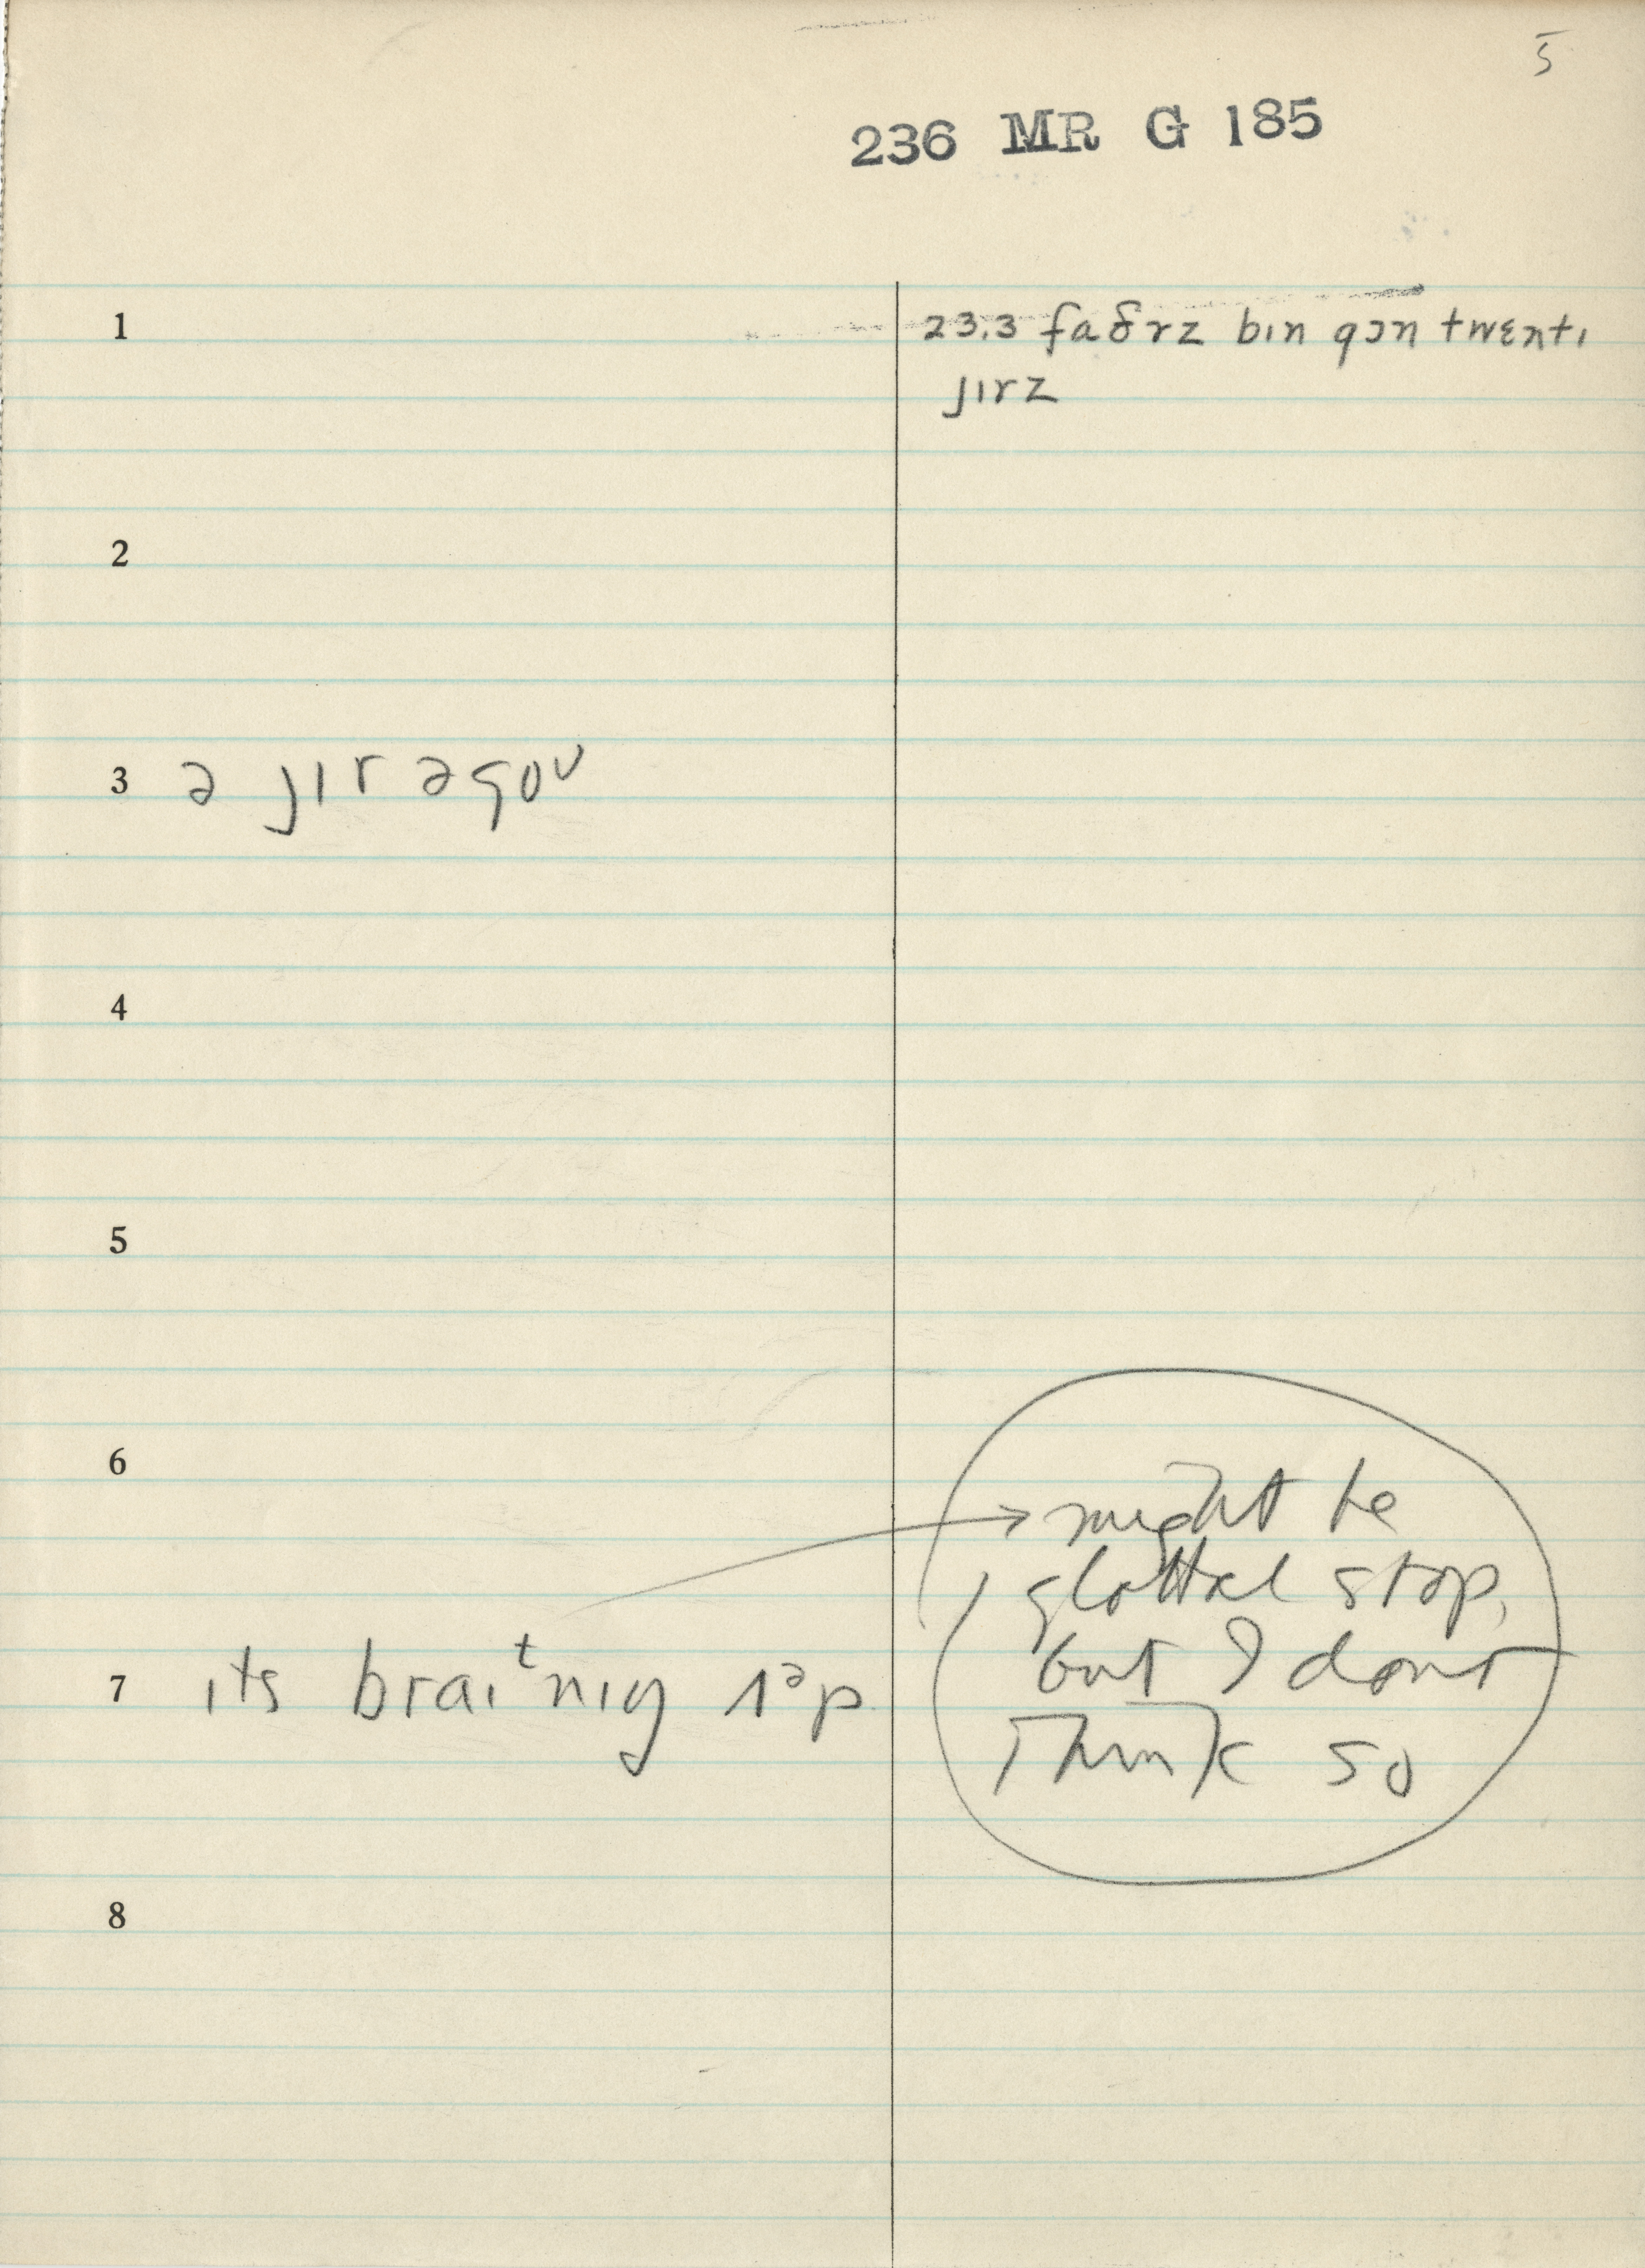 5
236 MR G 185
1 23.3 faðrz bɪn gɔn twɛntɪ
jɪrz
2
3 ə jɪr əgoʊ
4
5
6
might be
glottal stop,
but I dont
think so
7 ɪts braɪᵗnɪŋ ʌᵊp
8